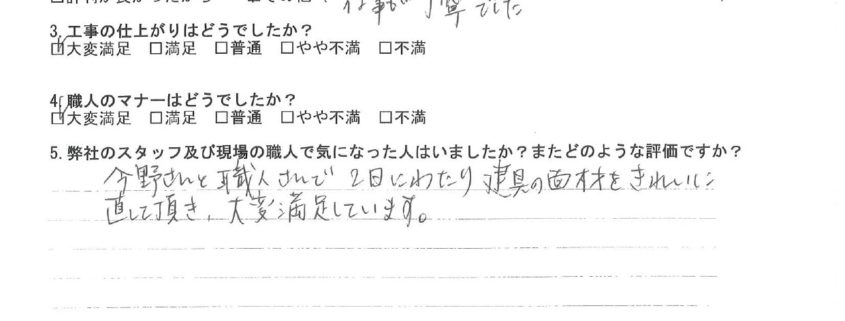 仕事が丁寧でした
3. 工事の仕上がりはどうでしたか？
☑大変満足 □満足 □普通 □やや不満 □不満
4. 職人のマナーはどうでしたか？
☑大変満足 □満足 □普通 □やや不満 □不満
5. 弊社のスタッフ及び現場の職人で気になった人はいましたか？またどのような評価ですか？
今野さんと職人さんで2日にわたり建具の面材をきれいに
直して頂き、大変満足しています。